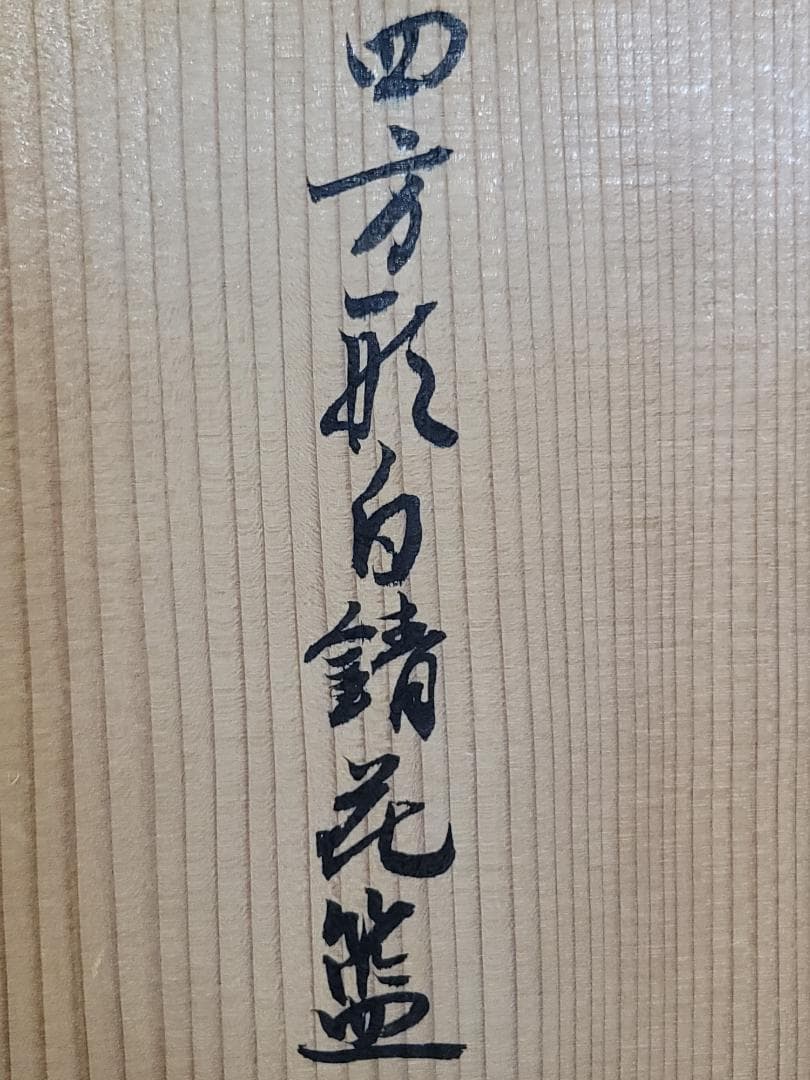 四方形白錆花籃